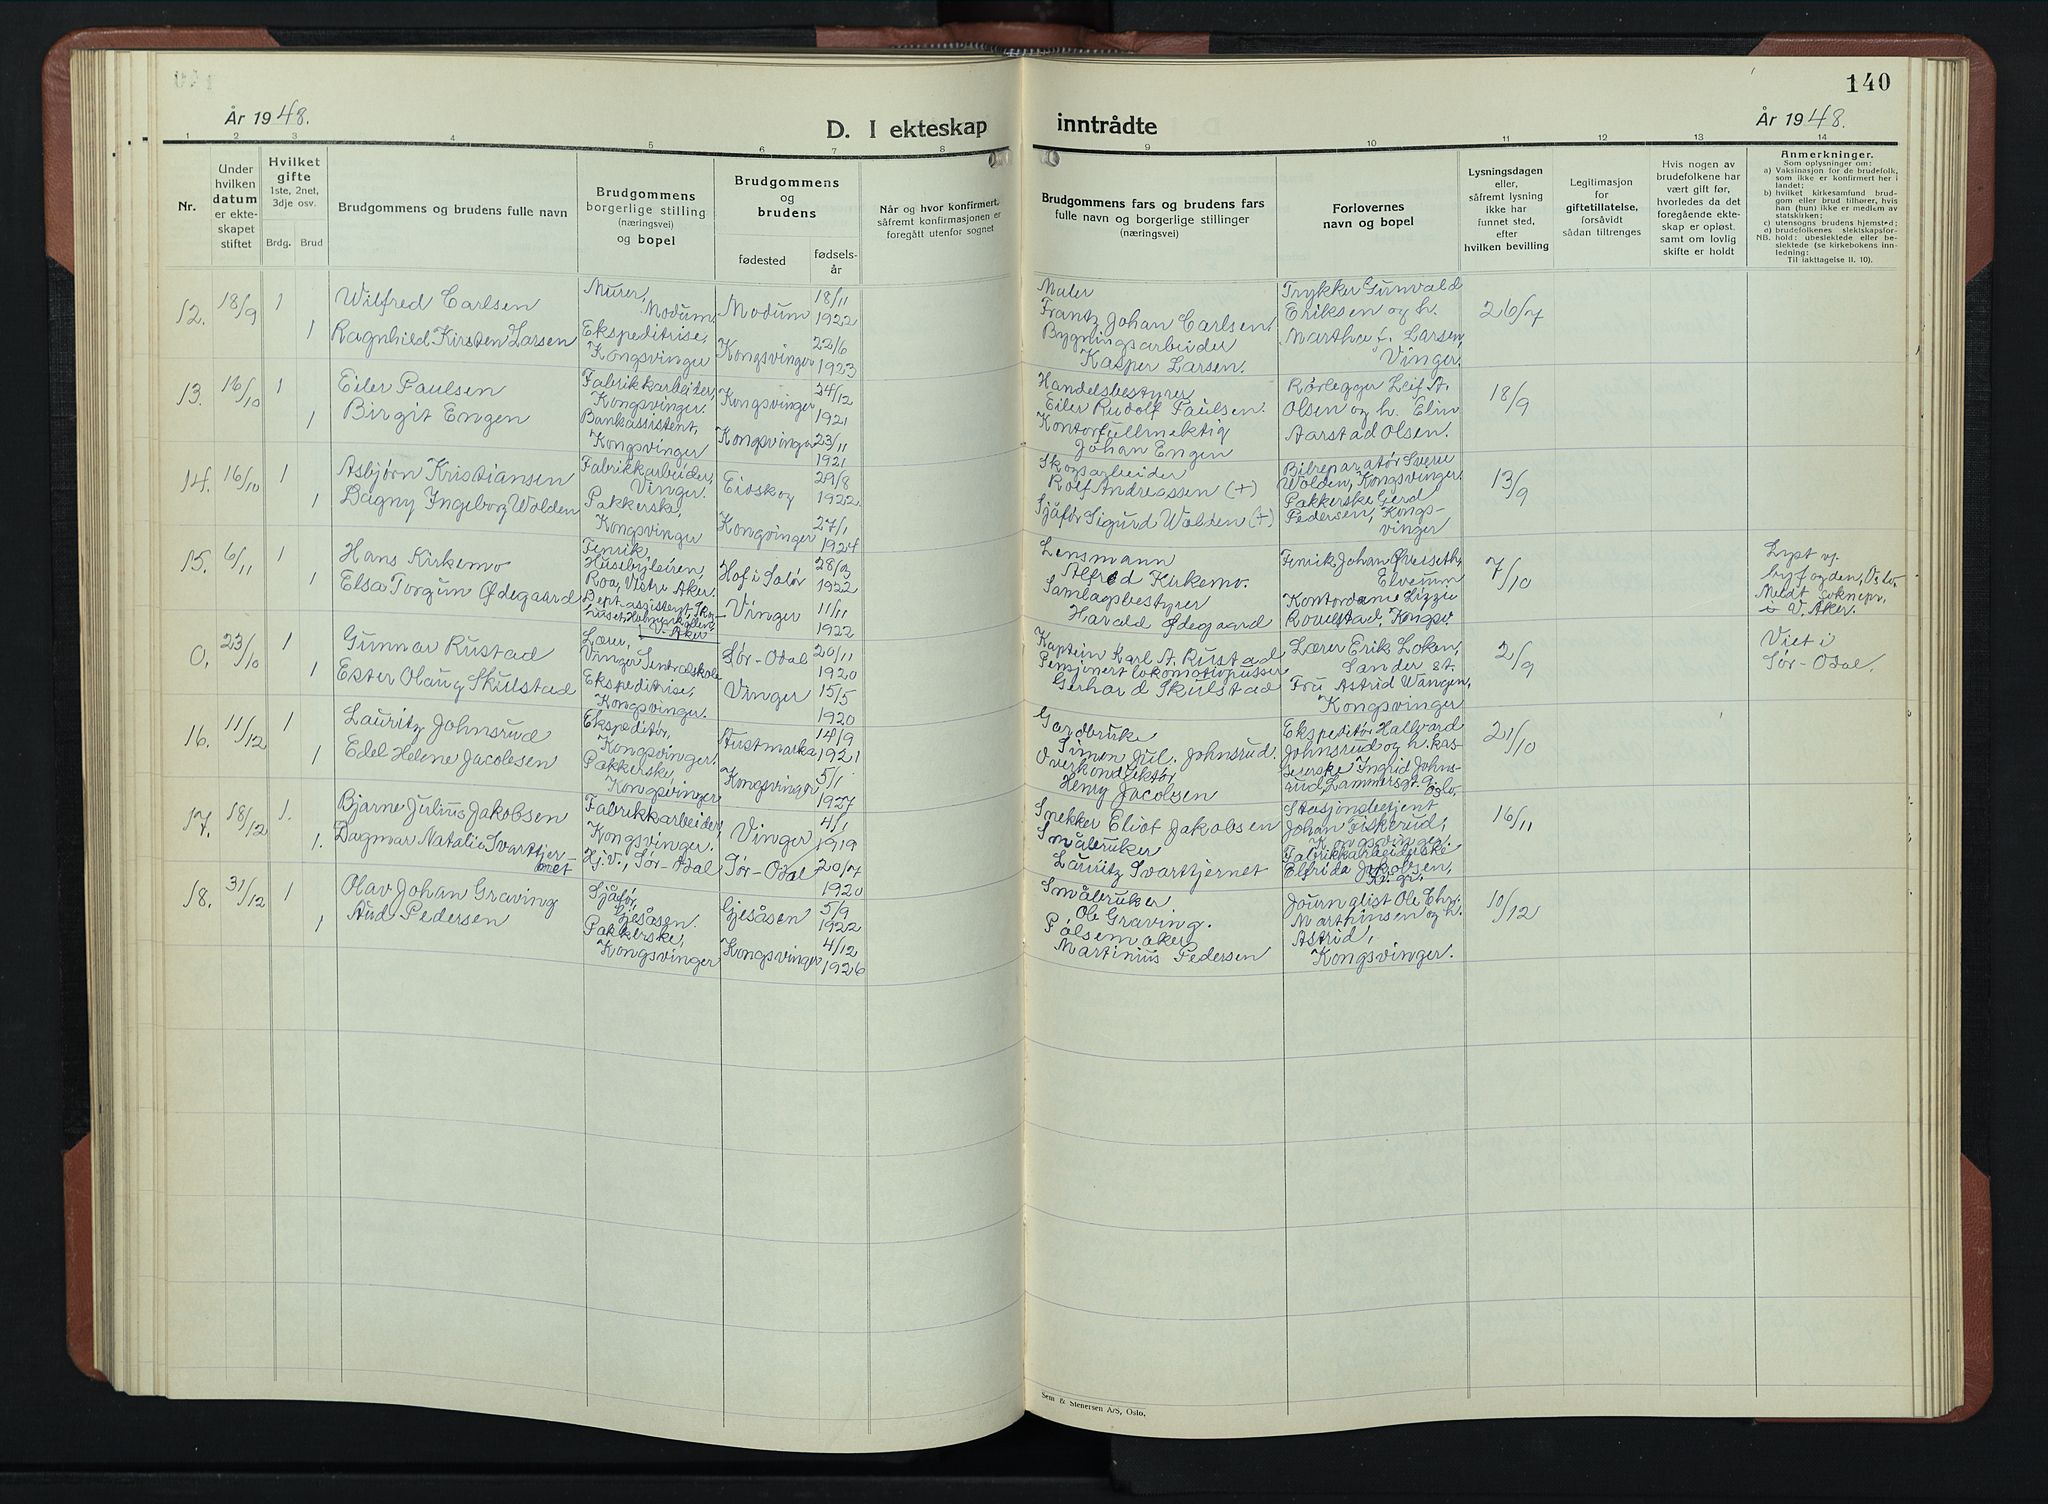 140
År 1948.
D. I ekteskap inntrådte
År 1948.
1 2 3 4 5 6 7 8 9 10 11 12 13 14
Nr.
Under
hvilken
datum
er ekte-
skapet
stiftet
Hvilket
gifte
1ste, 2net,
3dje osv.
Brdg. Brud
Brudgommens og brudens fulle navn
Brudgommens
borgerlige stilling
(næringsvei)
og bopel
Brudgommens
og
brudens
fødested
fødsels-
år
Når og hvor konfirmert,
såfremt konfirmasjonen er
foregått utenfor sognet
Brudgommens fars og brudens fars
fulle navn og borgerlige stillinger
(næringsvei)
Forlovernes
navn og bopel
Lysningsdagen
eller,
såfremt lysning
ikke har
funnet sted,
efter
hvilken bevilling
Legitimasjon
for
giftetillatelse,
forsåvidt
sådan tiltrenges
Hvis nogen av
brudefolkene har
vært gift før,
hvorledes da det
foregående ekte-
skap er opløst,
samt om lovlig
skifte er holdt
Anmerkninger.
Som oplysninger om:
a) Vaksinasjon for de brudefolk,
som ikke er konfirmert her i
landet;
b) hvilket kirkesamfund brud-
gom eller brud tilhører, hvis
han (hun) ikke er medlem av
statskirken;
c) utensogns brudens hjemsted;
d) brudefolkenes slektskapsfor-
hold: ubeslektede eller be-
slektede (se kirkebokens inn-
ledning;
NB.
Til iakttagelse II. 10).
12. 18/9 1
Wilfred Carlsen
Murer,
Modum.
Modum
18/11
1922
Maler
Frantz Johan Carlsen.
1
Ragnhild Kirsten Larsen
Ekspeditrise,
Kongsvinger
Kongsvinger
22/6
1923
Bygningsarbeider
Kasper Larsen.
Trykker Gunvald
Eriksen og h.
Martha f. Larsen,
Vinger.
26/7
13. 16/10 1
Eiler Paulsen
Fabrikkarbeiter,
Kongsvinger.
Kongsvinger
24/12
1921
Handelsbestyrer
Eiler Rudolf Paulsen.
1
Birgit Engen
Bankassistent,
Kongsvinger
Kongsvinger
23/11
1921
Kontorfullmektig
Johan Engen
Rørlegger Leif A.
Olsen og h. Elin
Aarstad Olsen.
18/9
14. 16/10 1
Asbjørn Kristiansen
Fabrikkarbeider,
Vinger.
Eidskog
29/8
1922
Skogsarbeider
Rolf Andreassen (+)
1
Dagny Ingeborg Wolden
Pakkerske,
Kongsvinger
Kongvinger
27/1
1924
Sjåfør Sigurd Wolden (+)
Bilreparatør Sverre
Wolden, Kongsvinger.
Pakkerske Gerd
Pedersen, Kongs-
vinger
13/9
15. 6/11 1
Hans Kirkemo
Fenrik,
Husebyleiren,
Roa, Vestre Aker.
Hof i Solør
1922
Lensmann
Alfred Kirkemo.
1
Elsa Torgun Ødegaard
V. Aker
Vinger
11/11
1922
Samlagsbestyrer
Harald Ødegaard
Fenrik Johan Øverseth,
Elverum
Kontordame Lizzie
Roverstad, Kongsv
7/10
Lyst v.
byfogden, Oslo.
V. Aker.
0. 23/10 1
Gunnar Rustad
Lærer,
Vinger Sentralskole
Sør-Odal
20/11
1920
Kaptein Karl A. Rustad
1
Ester Olaug Skulstad
Ekspeditrise,
Kongsvinger.
Vinger
15/5
1920
Pensjonert lokomotivpusser
Gerhard Skulstad
Lærer Erik Løken,
Sander st.
Fru Astrid Wangen,
Kongsvinger
2/9
Viet i
Sør-Odal.
16. 11/12 1
Lauritz Johnsrud
Ekspeditør,
Kongsvinger.
Austmarka
14/9
1921
Gardbruker
Simen Jul. Johnsrud.
1
Edel Helene Jacobsen
Pakkerske,
Kongsvinger
Kongsvinger
5/1
1927
Overkonduktør
Henry Jacobsen
Ekspeditør Hallvard
Johnsrud og h. kas-
sererske Ingrid Johns-
rud, Lammersgt. 9.
Oslo.
21/10
17. 18/12 1.
Bjarne Julius Jakobsen
Fabrikkarbeider,
Kongsvinger.
Vinger
4/1
1919
Snekker Eliot Jakobsen
1.
Dagmar Natalie Svarttjer-
net
Hj.v., Sør-Odal
Sør-Odal
20/7
1920
Småbruker
Lauritz Svarttjernet
Stasjonsbetjent
Johan Fiskerud,
Kongsvinger.
Fabrikkarbeiderske
Elfrida Jakobsen,
16/11
18. 31/12 1
Olav Johan Graving
Sjåfør,
Gjesåsen.
Gjesåsen
5/9
1922
Småbruker
Ole Graving.
1
Aud Pedersen
Pakkerske,
Kongsvinger
Kongsvinger
4/12
1926
Pølsemaker
Martinius Pedersen
Journalist Ole Chr.
Marthinsen og h.
Astrid,
Kongsvinger.
10/12
Sem & Stenersen A/S, Oslo.